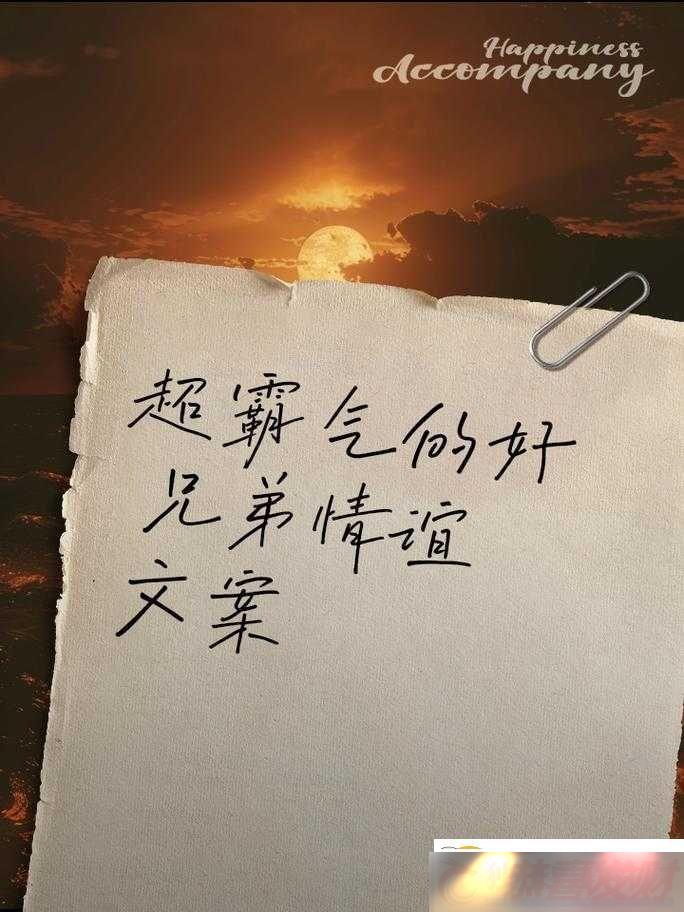 Happiness
Accompany
超霸气的好
兄弟情谊
文案